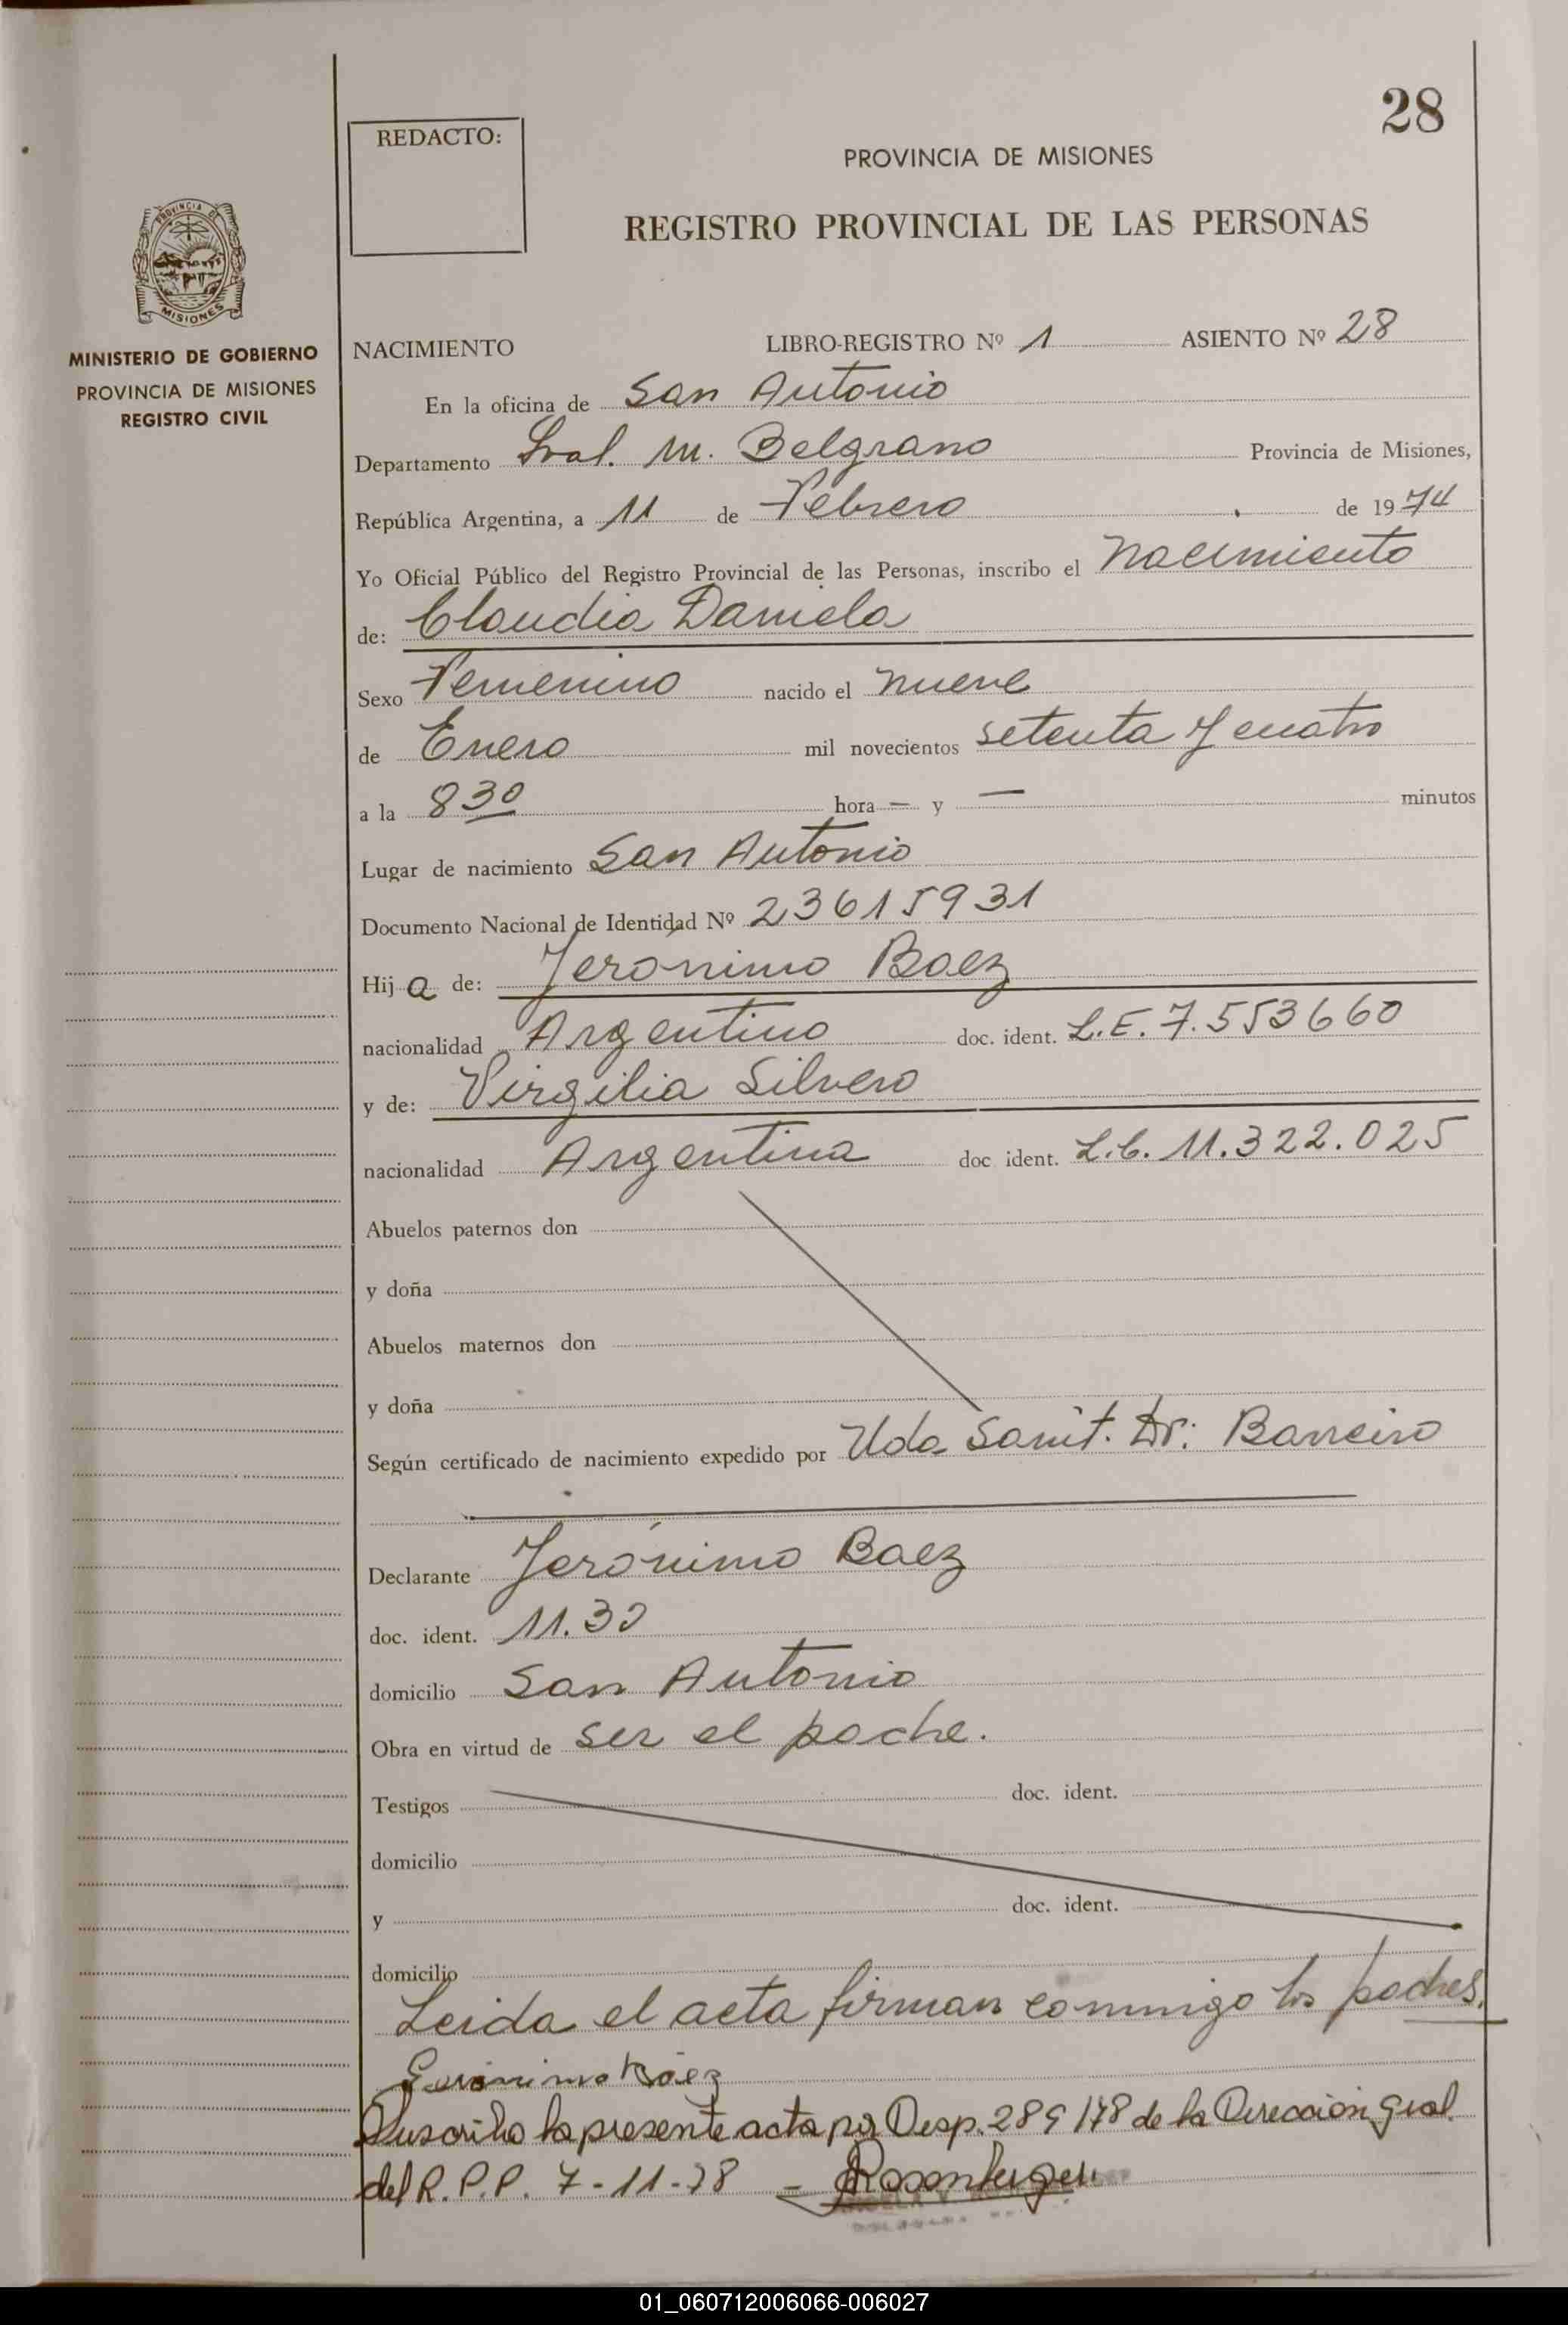 28
REDACTO:
PROVINCIA DE MISIONES
REGISTRO PROVINCIAL DE LAS PERSONAS
PROVINCIA DE
MISIONES
MINISTERIO DE GOBIERNO
PROVINCIA DE MISIONES
REGISTRO CIVIL
NACIMIENTO LIBRO-REGISTRO Nº 1 ASIENTO Nº 28
En la oficina de San Antonio
Departamento Gral. M. Belgrano Provincia de Misiones,
República Argentina, a 11 de Febrero de 1974
Yo Oficial Público del Registro Provincial de las Personas, inscribo el Nacimiento
de: Claudia Daniela
Sexo Femenino nacido el nueve
de Enero mil novecientos setenta y cuatro
a la 8 30 hora — y — minutos
Lugar de nacimiento San Antonio
Documento Nacional de Identidad Nº 23615931
Hij a de: Jerónimo Baez
nacionalidad Argentino doc. ident. L.E. 7.553660
y de: Virgilia Silvero
nacionalidad Argentina doc ident. L.C. 11.322.025
Abuelos paternos don
y doña
Abuelos maternos don
y doña
Según certificado de nacimiento expedido por Uda Sanit. Dr: Barreiro
Declarante Jerónimo Baez
doc. ident. 11.30
domicilio San Antonio
Obra en virtud de ser el padre.
Testigos doc. ident.
domicilio
y doc. ident.
domicilio
Leida el acta firman conmigo los padres.
Gerónimo Báez
Suscribo la presente acta por Desp. 289/78 de la Dirección Gral.
del R.P.P. 7-11-78 -
01_060712006066-006027